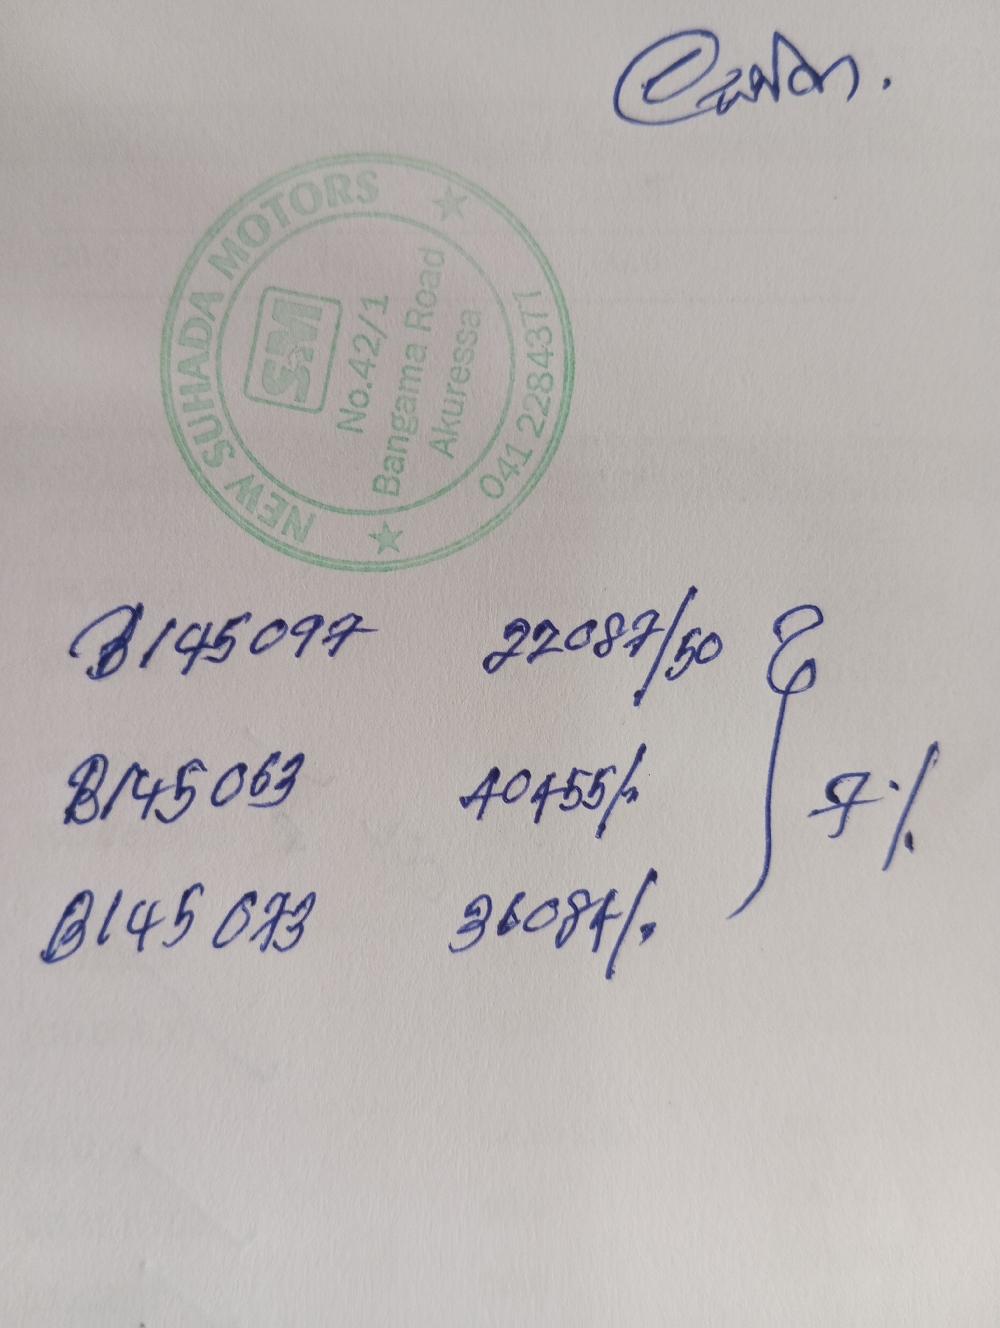 NEW SUHADA MOTORS
SM
No.42/1
Bangama Road
Akuressa
041 2284377
B145097 22087/50
B145063 40455/-
B145073 36084/-
7%